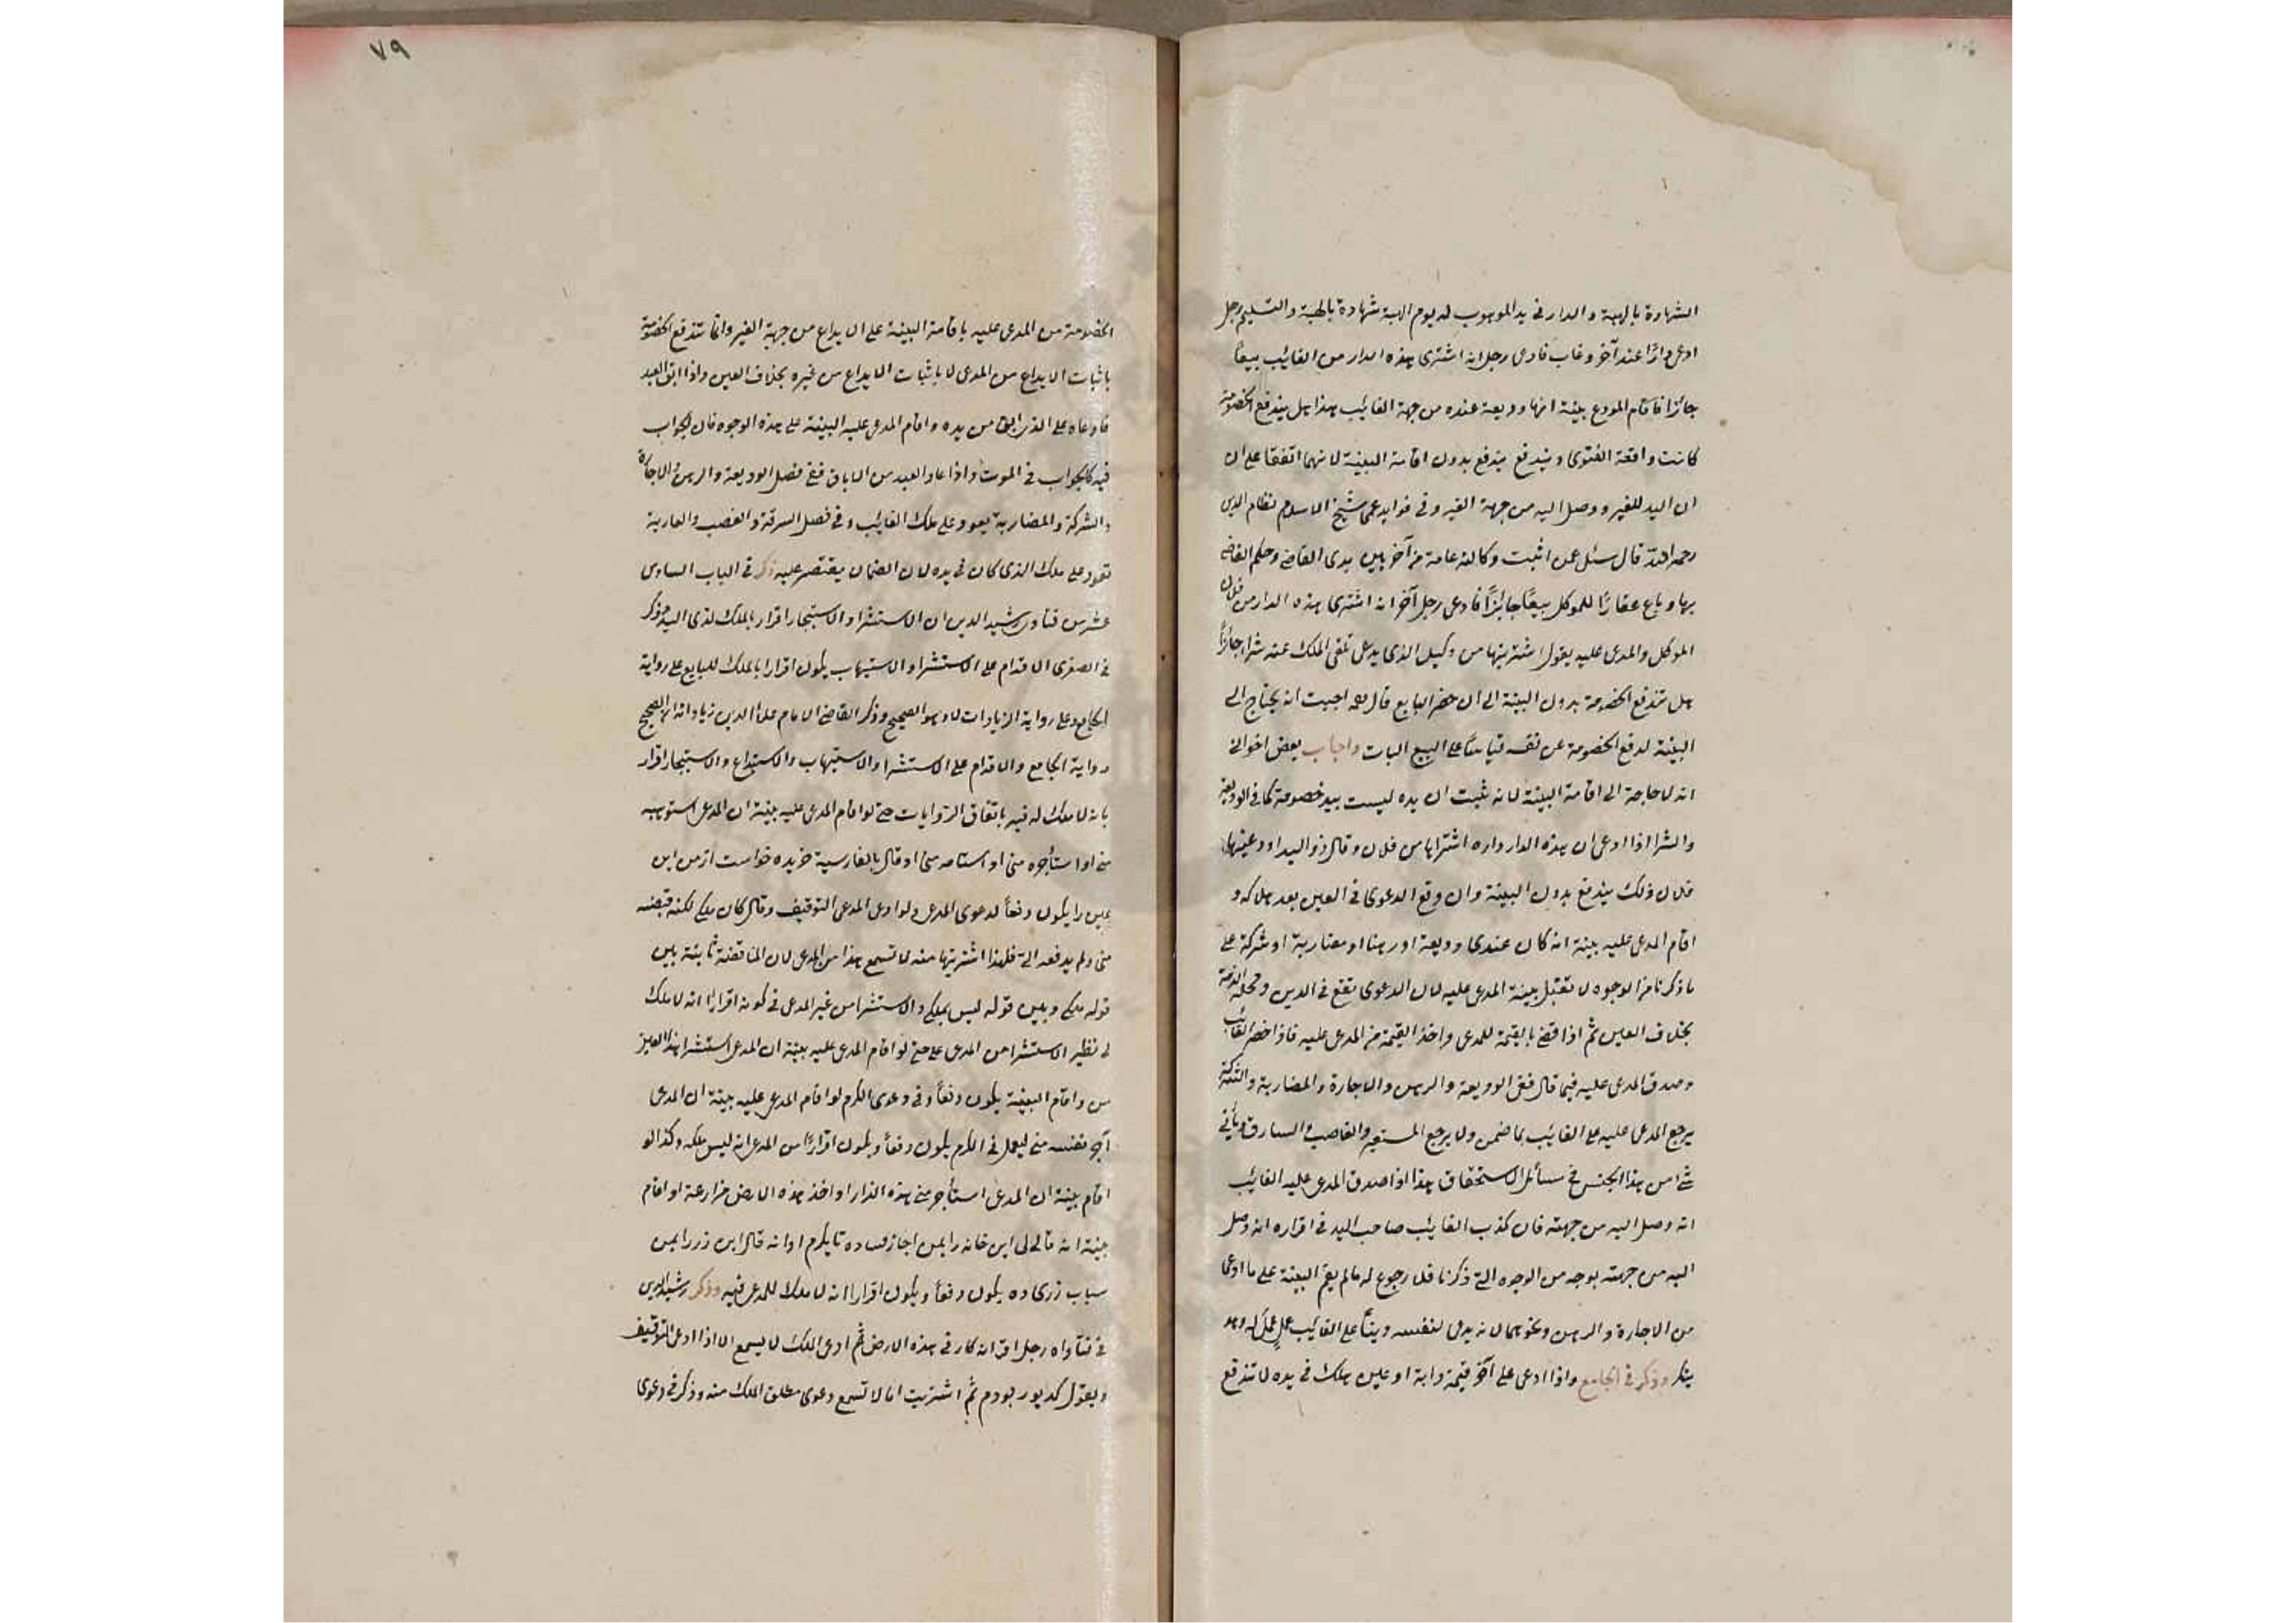 الشهادة بالهبة والدار في يد الموهوب له يوم الهبة شهادة بالهبة والتسليم رجل
ادعى دارًا عند آخر وغاب فادعى رجل انه اشترى هذه الدار من الغائب بيعًا
جائزا فاقام المودع بينة انها وديعة عنده من جهة الغائب هذا هل يندفع الخصومة
كانت واقعة الفتوى ويندفع يندفع بدون اقامة البينة لانهما اتفقا على ان
ان اليد للغير ووصل اليه من جهة الغير وفي فوايد عمى شيخ الاسلام نظام الدين
رحمه الله قال سئل عمن اثبت وكالة عامة من آخر بين يدى القاضي وحكم القاضي
بها وباع عقارًا للموكل بيعًا جائزًا فادعى رجل آخر انه اشترى هذه الدار من فلان
الموكل والمدعى عليه يقول اشتريتها من وكيل الذى يدعى تلقى الملك عنه شراء جائزًا
هل تندفع الخصومة بدون البينة الى ان حضر البايع قال اجيب انه يحتاج الى
البينة لدفع الخصومة عن نفسه قياسًا على البيع البات واجاب بعض اخوانى
انه لا حاجة الى اقامة البينة لانه ثبت ان يده ليست بيد خصومة كما فى الوديعة
والشرا اذا ادعى ان هذه الدار داره اشتراها من فلان وقال ذو اليد اودعنيها
فلان ذلك يندفع بدون البينة وان وقع الدعوى فى العين بعد هلاكه و
اقام المدعى عليه بينة انه كان عندى وديعة او رهنا او مضاربة او شركة على
ما ذكرنا من الوجوه لا تقبل بينة المدعى عليه لان الدعوى تقع فى الدين ومحله الذمة
بخلاف العين ثم اذا قضى بالقيمة للمدعى واخذ القيمة من المدعى عليه فاذا حضر الغائب
وصدق المدعى عليه فيما قال ففى الوديعة والرهن والاجارة والمضاربة والشركة
يرجع المدعى عليه على الغائب بما ضمن ولا يرجع المستعير والغاصب والسارق ويأتى
شئ من هذا الجنس فى مسائل الاستحقاق هذا اذا صدق المدعى عليه الغائب
انه وصل اليه من جهته فان كذب الغائب صاحب اليد فى اقراره انه وصل
اليه من جهته بوجه من الوجوه التى ذكرنا فلا رجوع له ما لم يقم البينة على ما ادعى
من الاجارة والرهن ونحوهما لانه يدعى لنفسه دينًا على الغائب عمل له وهو
ينكر وذكر فى الجامع واذا ادعى على آخر قيمة دابة او عين هلك فى يده لا تندفع
٧٩
الخصومة من المدعى عليه باقامة البينة على الايداع من جهة الغير وانما تندفع الخصومة
باثبات الايداع من المدعى لا باثبات الايداع من غيره بخلاف العين واذا ابق العبد
فادعاه على الذى ابق من يده واقام المدعى عليه البينة على هذه الوجوه فان الجواب
فيه كالجواب فى الموت واذا عاد العبد من الاباق ففى فصل الوديعة والرهن والاجارة
والشركة والمضاربة يعود على ملك الغائب وفى فصل السرقة والغصب والعارية
تعود على ملك الذى كان فى يده لان الضمان يقتصر عليه ذكر فى الباب السادس
عشر من فتاوى رشيد الدين ان الاستشراء والاستيجار اقرار بالملك لذى اليد وذكر
فى الصغرى الاقدام على الاستشرا والاستيهاب يكون اقرارا بالملك للبايع على رواية
الجامع وعلى رواية الزيادات لا وهو الصحيح وذكر القاضى الامام علاء الدين زياداته ان الصحيح
رواية الجامع والاقدام على الاستشرا والاستيهاب والاستيداع والاستيجار اقرار
بانه لا ملك له فيه باتفاق الروايات حتى لو اقام المدعى عليه بينة ان المدعى استوهبه
منى او استأجره منى او استامه منى او قال بالفارسية خريده خواست از من اين
عين را يكون دفعًا لدعوى المدعى ولو ادعى المدعى التوقيف وقال كان ملكى لكنه قبضه
منى ولم يدفعه الىّ فلهذا اشتريتها منه لا تسمع هذا من المدعى لان المناقضة ثابتة بين
قوله ملكى وبين قوله ليس بملكى والاستشرا من غير المدعى فى كونه اقرارًا انه لا ملك
له نظير الاستشرا من المدعى عليه حتى لو اقام المدعى عليه بينة ان المدعى استشرا هذا العين
من واقام البينة يكون دفعًا وفى دعوى الكرم لو اقام المدعى عليه بينة ان المدعى
آجر نفسه منى ليعمل فى الكرم يكون دفعًا ويكون اقرارًا من المدعى انه ليس ملكه وكذا لو
اقام بينة ان المدعى استأجر منى هذه الدار او اخذ هذه الارض مزارعة او اقام
بينة انه قال لى اين خانه را بمن اجاز ده تا بكيرم او انه قال اين زر را بمن
دى ده يكون دفعًا ويكون اقرارا انه لا ملك للمدعى فيه وذكر رشيد الدين
فى فتاواه رجل اقر انه كار فى هذه الارض ثم ادعى الملك لا يسمع الا اذا ادعى التوقيف
ويقول كديور بودم ثم اشتريت اما لا تسمع دعوى مطلق الملك منه وذكر فى دعوى